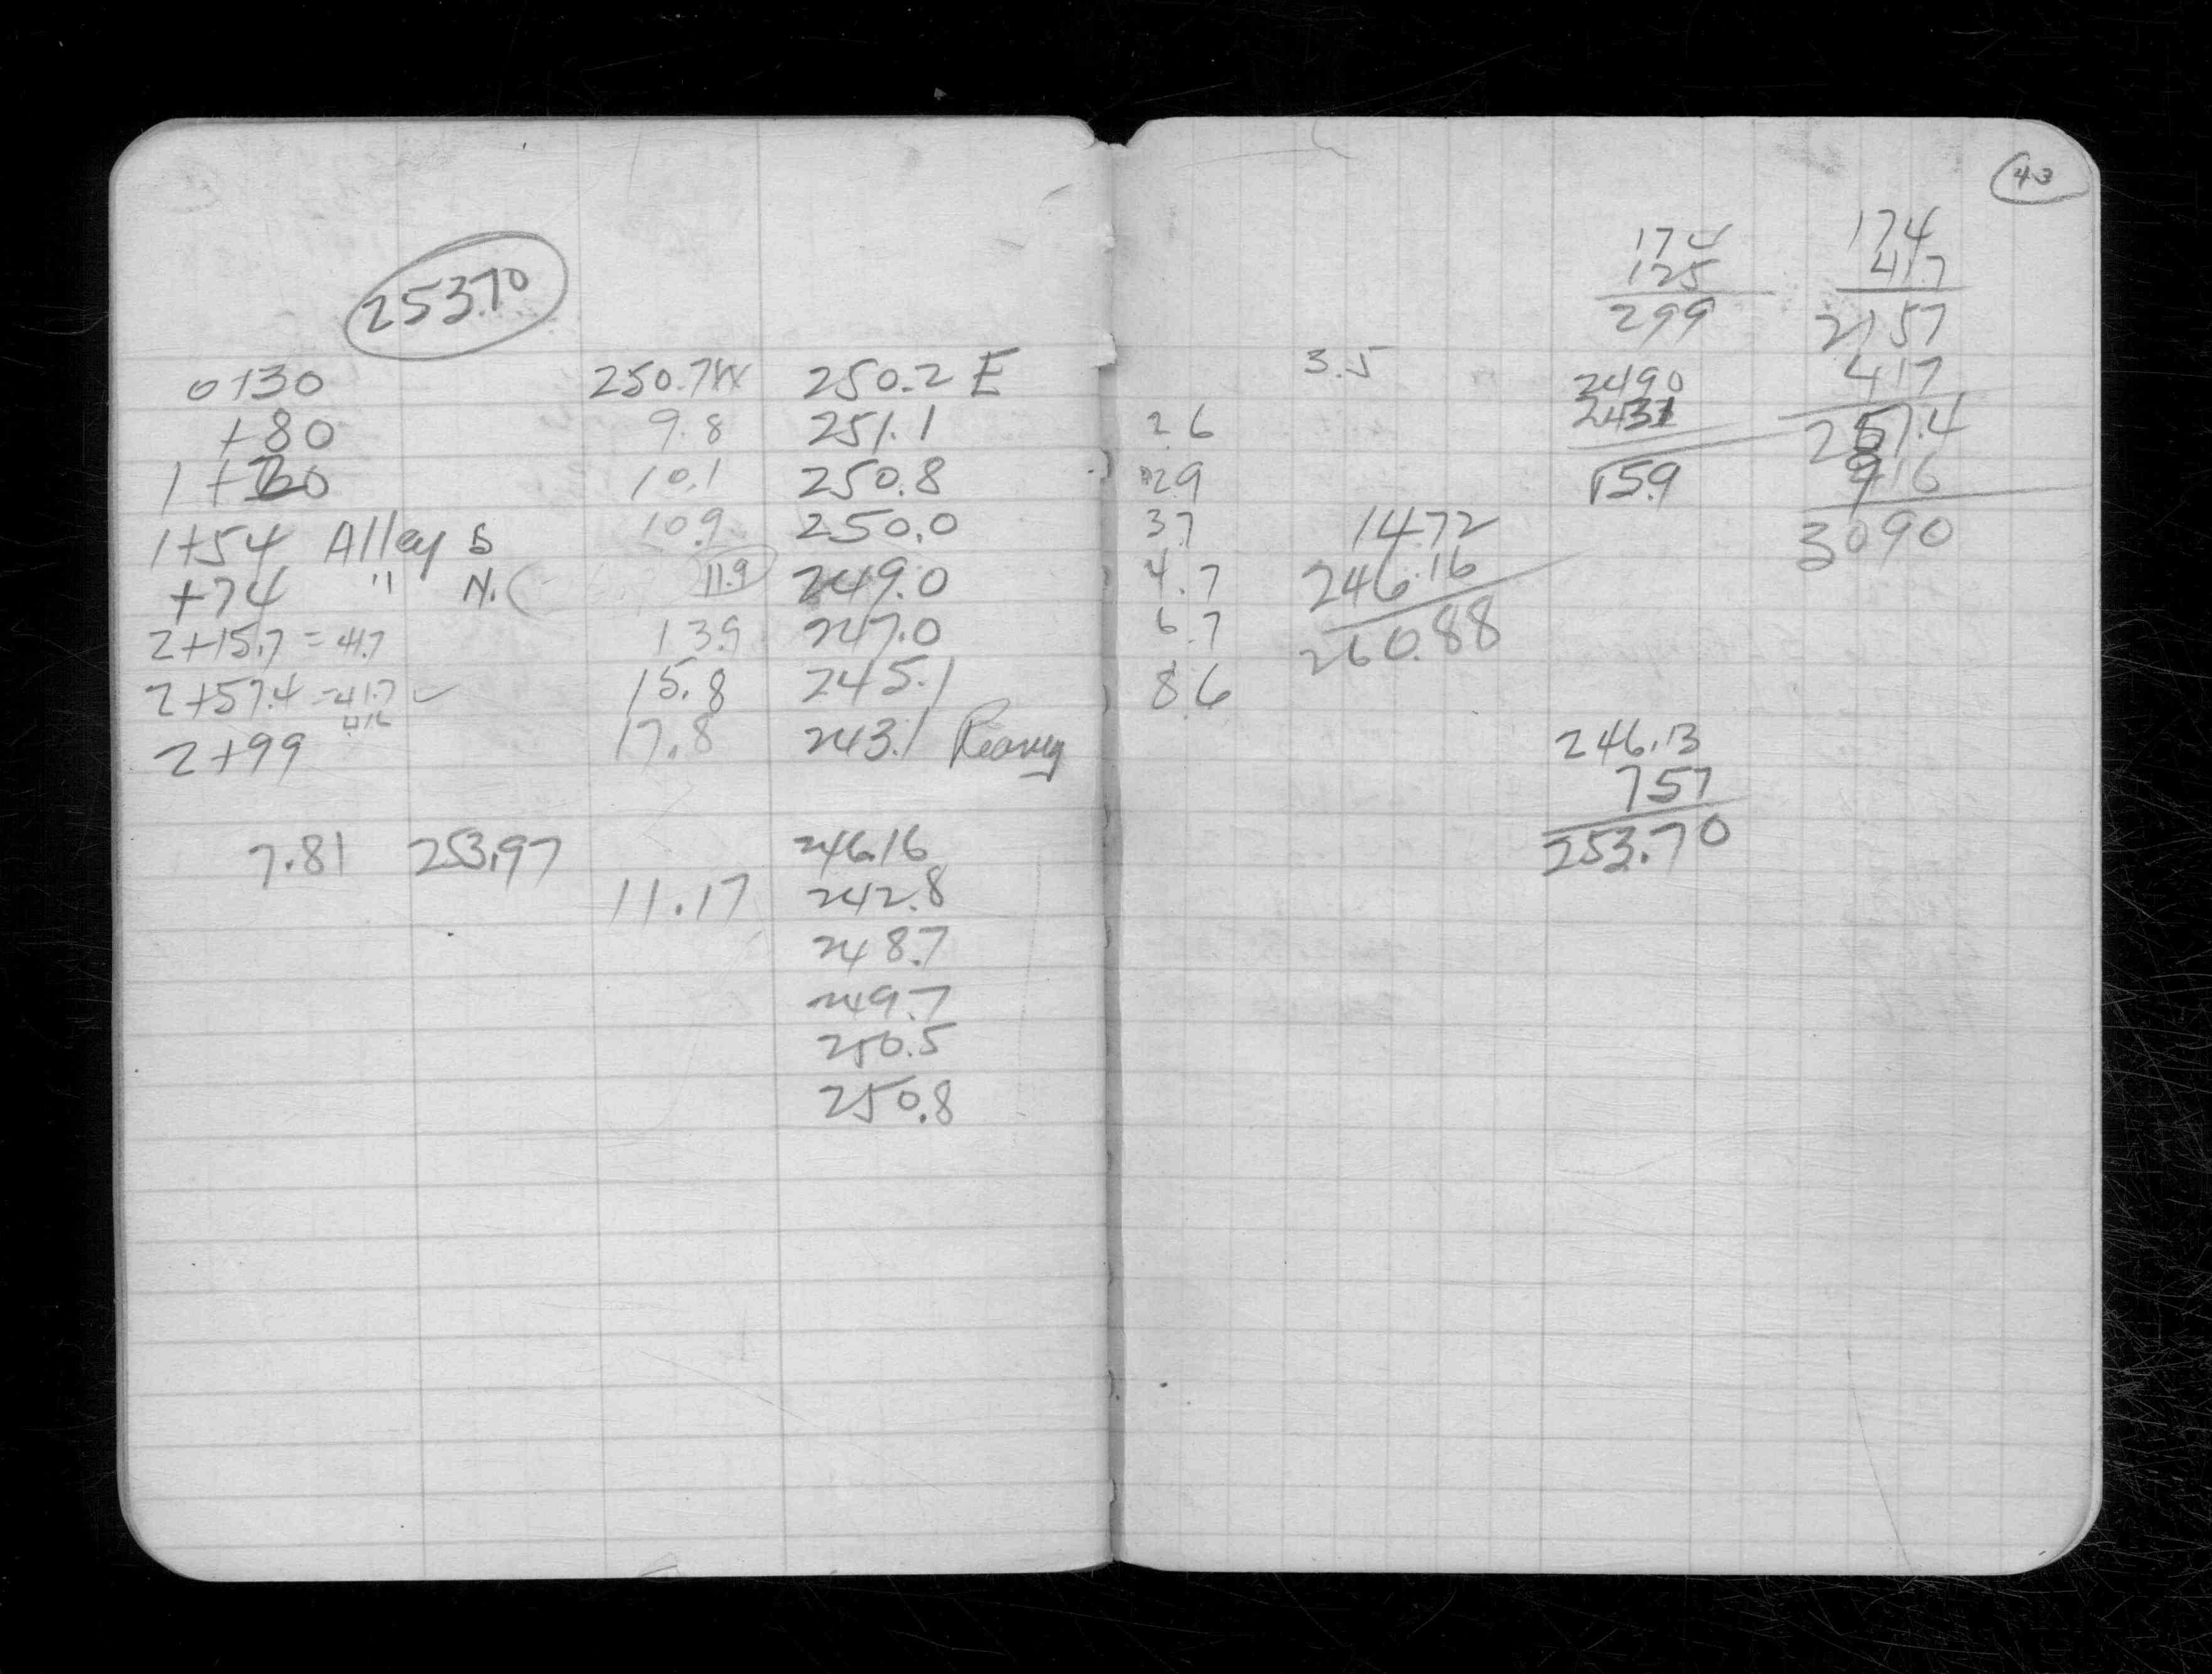 253.70
0+30 250.7 250.2 E
+80 9.8 251.1
1+20 10.1 250.8
1+54 Alley S 10.9 250.0
+74 " N. 11.9 249.0
2+15.7 = 41.7 13.9 247.0
2+57.4 = 41.7 15.8 245.1
41.6
2+99 17.8 243.1
7.81 253.97 246.16
11.17 242.8
248.7
249.7
250.5
250.8
43
174
125
299
174
41.7
2157
417
257.4
916
3090
3.5
2490
2431
15.9
2.6
2.9
3.7
4.7
6.7
8.6
14.72
246.16
260.88
246.13
757
253.70